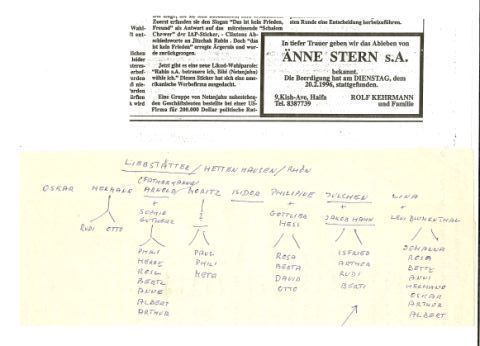 Zuerst erfanden sie den Slogan "Das ist kein Frieden,
Freund" als Antwort auf das mitreissende "Schalom
Chawer" der IAF-Sticker, - Clintons Ab-
schiedsworte an Jitzchak Rabin - Doch "das
ist kein Frieden" erregte Ärgernis und wur-
de zurückgezogen.
Jetzt gibt es eine neue Likud-Wahlparole:
"Rabin s.A. betrauere ich, Bibi (Netanjahu)
wähle ich." Diesen Sticker hat sich eine ame-
rikanische Werbefirma ausgedacht.
Eine Gruppe von Netanjahu nahestehen-
den Geschäftsleuten bestellte bei einer US-
Firma für 200.000 Dollar politische Rat-
ten Runde die Entscheidung herbeizuführen.
In tiefer Trauer geben wir das Ableben von
ÄNNE STERN s.A.
bekannt.
Die Beerdigung hat am DIENSTAG, dem
20.2.1996, stattgefunden.
9,Kish-Ave, Haifa
Tel. 8387739
ROLF KEHRMANN
und Familie
LIEBSTÄTTER / HETTENHAUSEN / RHÖN
OSKAR HERMANE ARNOLD MORITZ ISIDOR PHILIPINE JULCHEN LINA
+ + + +
SOPHIE GUTHERZ
GOTTLIEB HESS
JAKOB HAHN
LEVI BLUMENTHAL
RUDI OTTO
PHILI
HERRY
ROSL
BERTL
ANNE
ALBERT
ARTHUR
PAUL
PHILI
META
ROSA
BERTA
DAVID
OTTO
ISFRIED
ARTHUR
RUDI
BERTI
JOHANNA
ROSA
BETTY
ANNI
HERMANO
OSKAR
ARTHUR
ALBERT